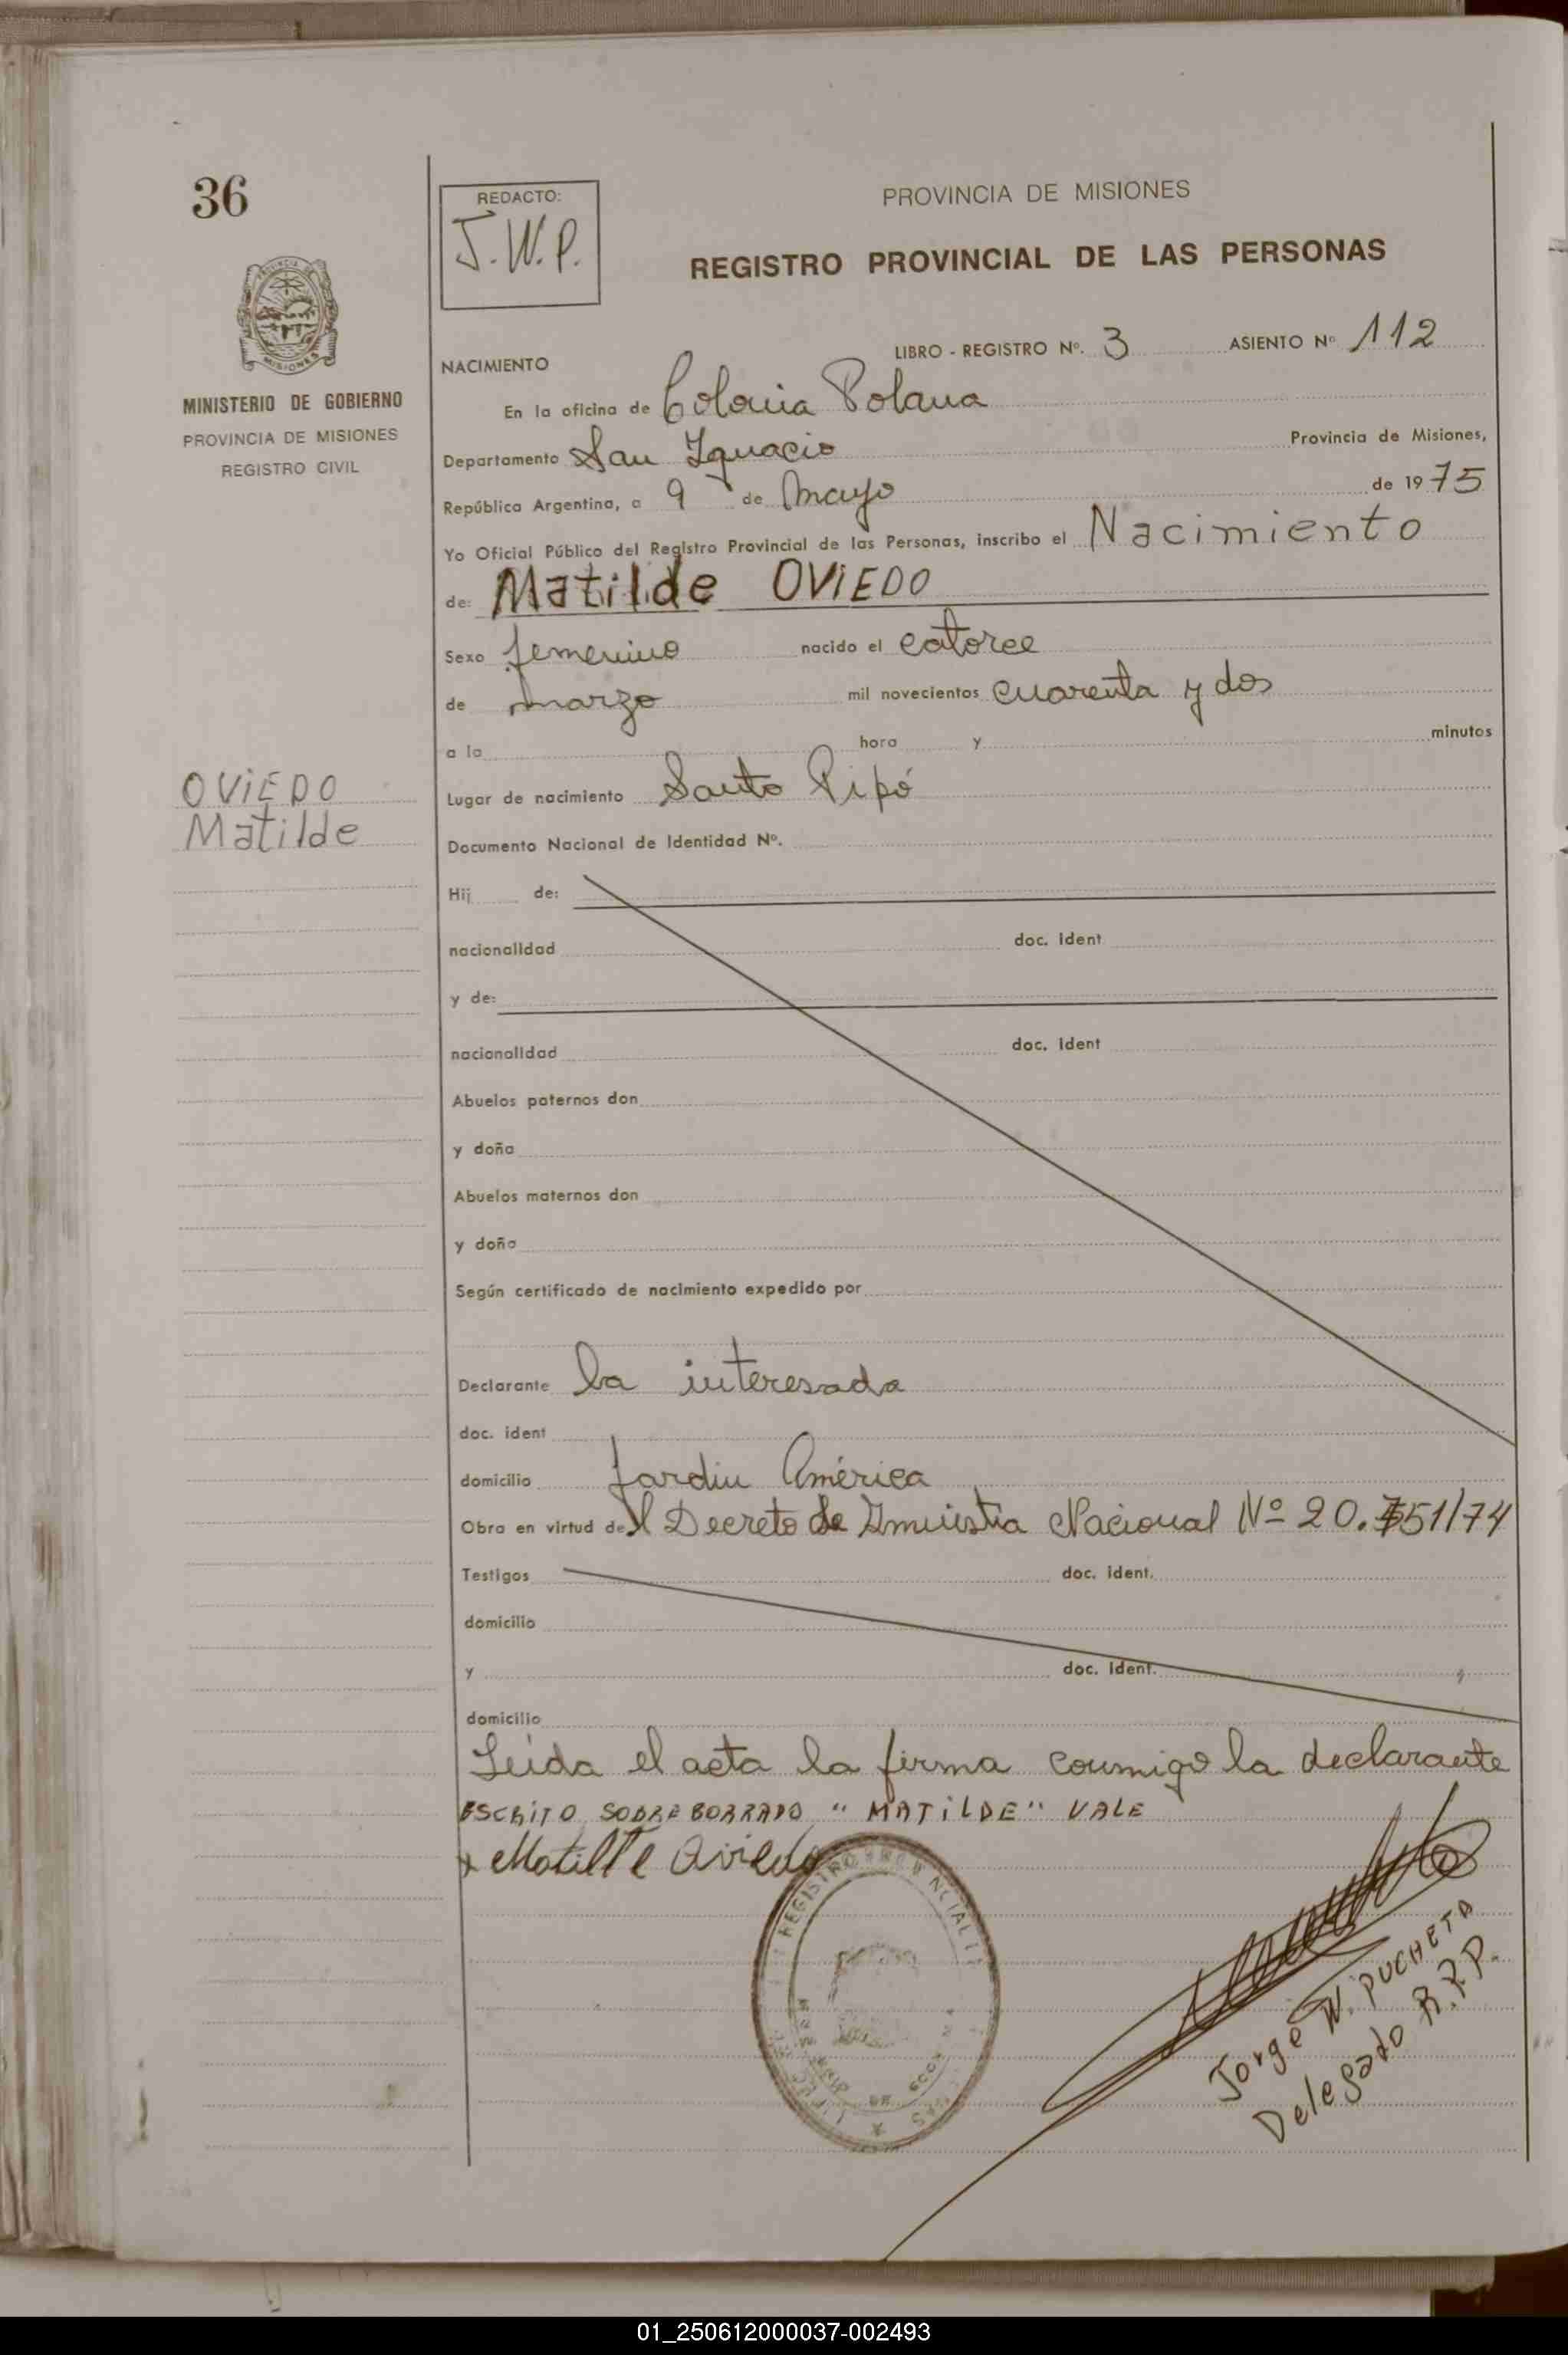 36
REDACTO:
J.W.P.
PROVINCIA DE MISIONES
REGISTRO PROVINCIAL DE LAS PERSONAS
MINISTERIO DE GOBIERNO
PROVINCIA DE MISIONES
REGISTRO CIVIL
NACIMIENTO LIBRO - REGISTRO Nº. 3 ASIENTO Nº 112
En la oficina de Colonia Polana
Departamento San Ignacio Provincia de Misiones,
República Argentina, a 9 de Mayo de 1975
Yo Oficial Público del Registro Provincial de las Personas, inscribo el Nacimiento
de: Matilde OVIEDO
Sexo femenino nacido el catorce
de marzo mil novecientos cuarenta y dos
a la hora y minutos
OVIEDO
Matilde
Lugar de nacimiento Santo Pipó
Documento Nacional de Identidad Nº.
Hij de:
nacionalidad doc. ident
y de:
nacionalidad doc. ident
Abuelos paternos don
y doña
Abuelos maternos don
y doña
Según certificado de nacimiento expedido por
Declarante la interesada
doc. ident
domicilio Jardin América
Obra en virtud del Decreto de Amnistia Nacional Nº 20.751/74
Testigos doc. ident.
domicilio
y doc. ident.
domicilio
Leida el acta la firma conmigo la declarante
ESCRITO SOBREBORRADO "MATILDE" VALE
x Matilde Oviedo
REGISTRO PROVINCIAL
Jorge W. PUCHETA
Delegado R.P.P.
01_250612000037-002493